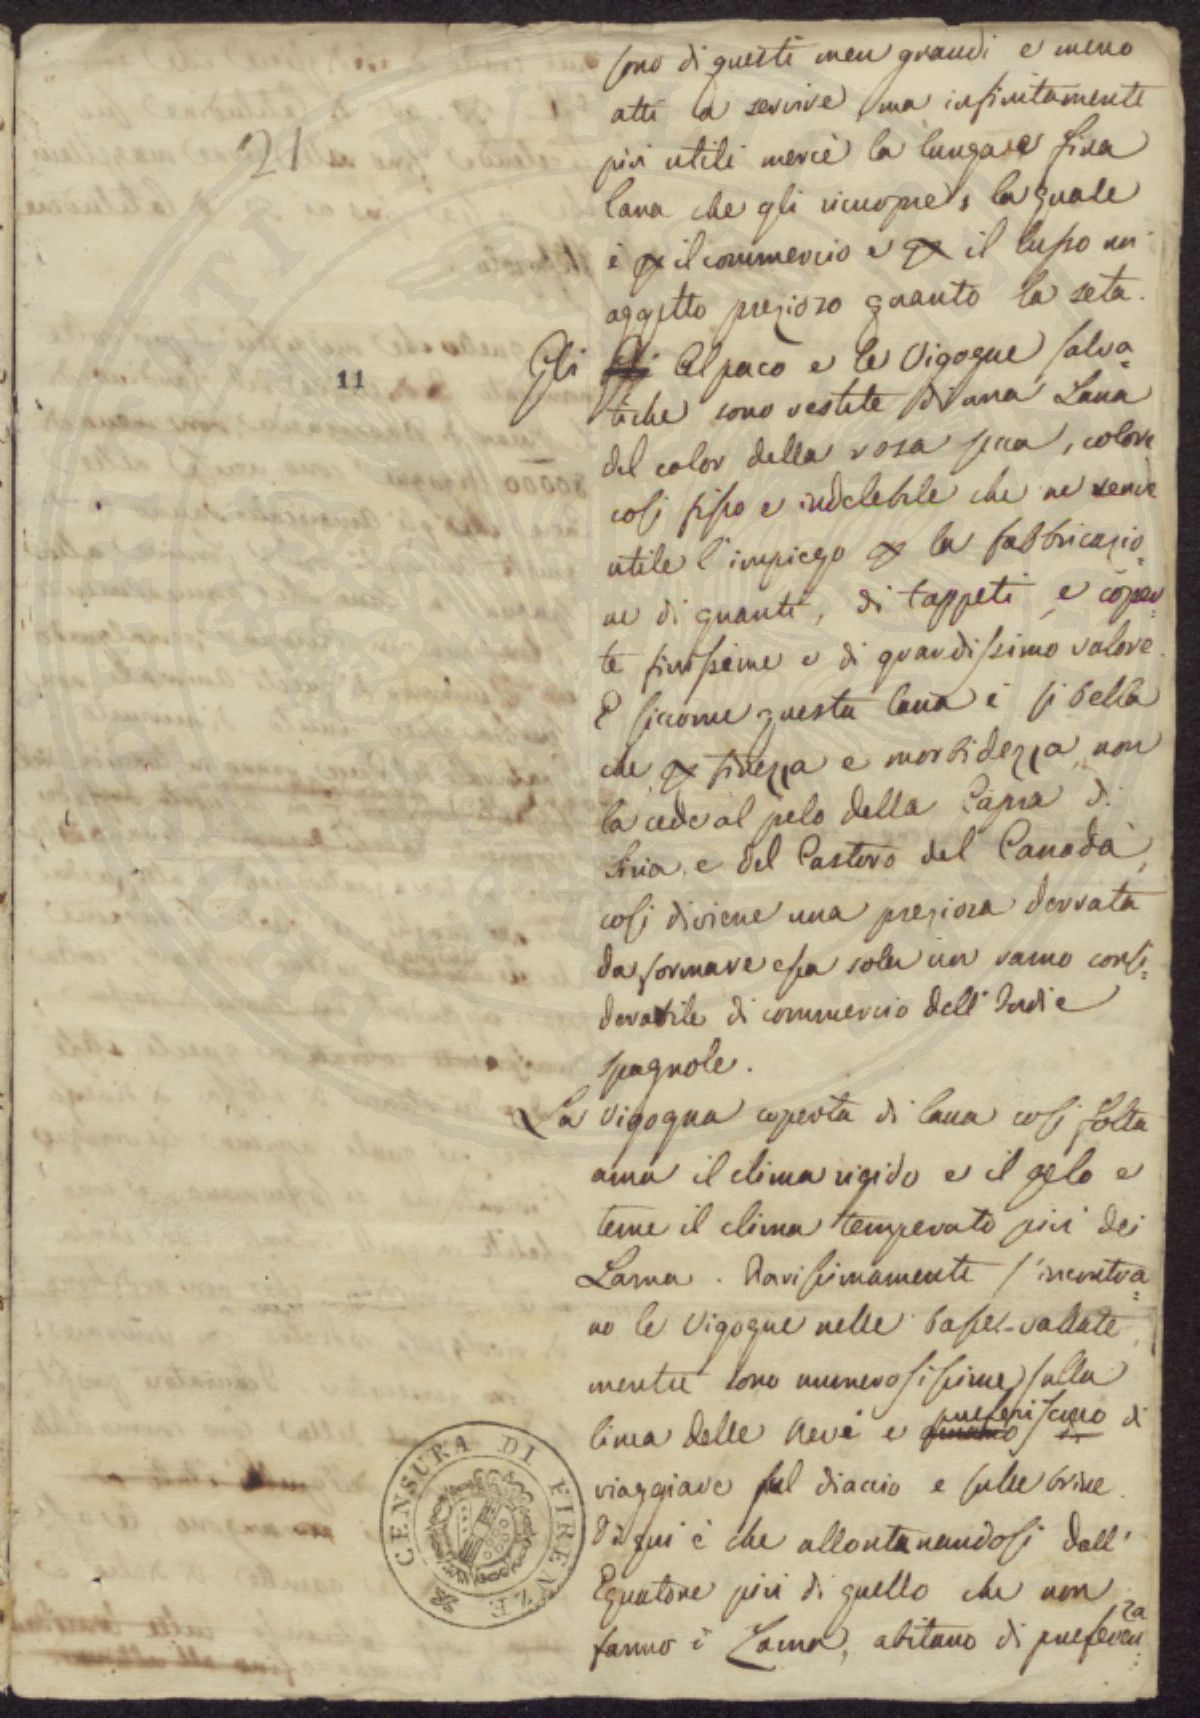 21
11
sono di questi men grandi e meno
atti a servire, ma infinitamente
più utili mercè la lunga e fina
lana che gli ricuopre, la quale
è p il commercio e p il lusso un
oggetto prezioso quanto la seta.
Gli Gli Alpaco e le Vigogne salva=
tiche sono vestite di una Lana
del color della rosa secca, colore
così fisso e indelebile che ne rende
utile l'impiego p la fabbricazio=
ne di guanti, di tappeti, e coper=
te finissime e di grandissimo valore.
E siccome questa lana è sì bella
che p finezza e morbidezza non
la cede al pelo della Capra di
Siria e del Castoro del Canadà,
così diviene una preziosa derrata
da formare essa sola un ramo consi=
derabile di commercio dell'Indie
spagnole.
La Vigogna coperta di lana così folta
ama il clima rigido e il gelo e
teme il clima temperato più dei
Lama. Rarissimamente s'incontra=
no le Vigogne nelle basse vallate,
mentre sono numerosissime sulla
linea delle Nevi e preferiscono di
viaggiare sul diaccio e sulle brine.
Di qui è che allontanandosi dall'
Equatore più di quello che non
fanno i Lama, abitano di preferen=
za
CENSURA DI FIRENZE